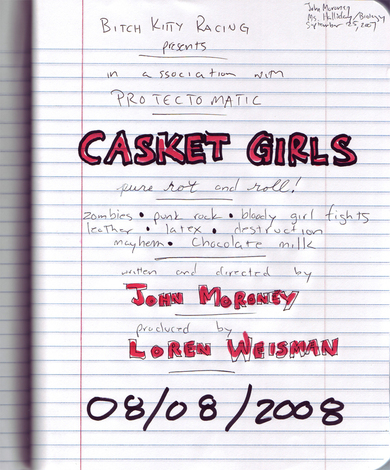 John Moroney
Ms. Holladay/Biology
September 25, 2007
BITCH KITTY RACING
presents
in association with
PROTECTOMATIC
CASKET GIRLS
pure rot and roll!
zombies • punk rock • bloody girl fights
leather • latex • destruction
mayhem • chocolate milk
written and directed by
JOHN MORONEY
produced by
LOREN WEISMAN
08/08/2008